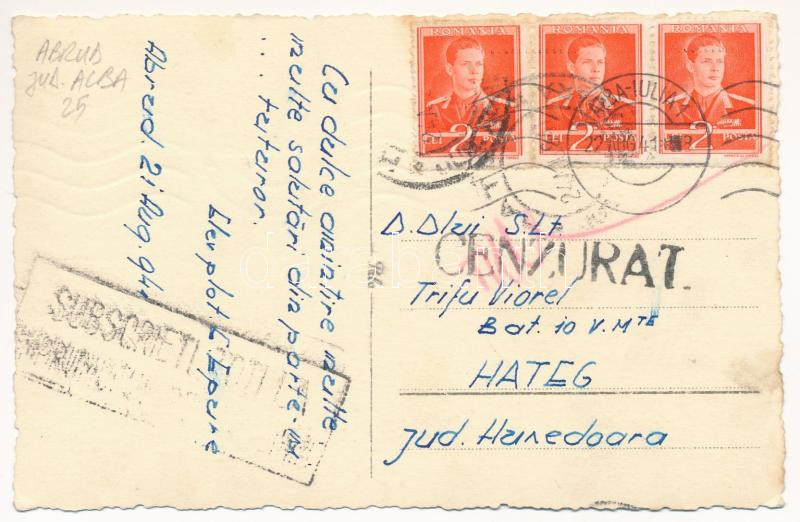 ABRUD
JUD. ALBA
25
Cu dulce amintire multe,
multe salutări din parte-mi
... tuturor.
Abrud. 21 Aug. 941
ROMANIA
ROMANIA
ROMANIA
2 LEI POSTA
2 LEI POSTA
2 LEI POSTA
ALBA-IULIA
D. Dlui S.Lt.
CENZURAT
Trifu Viorel
Bat. 10 V. MTE
HATEG
jud. Hunedoara
SUBSCRIEȚI
darabanth.com